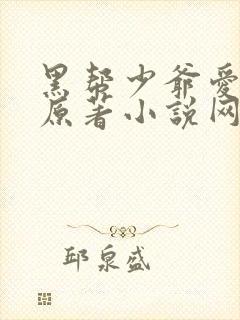 黑帮少爷爱
原著小说网
邱泉盛